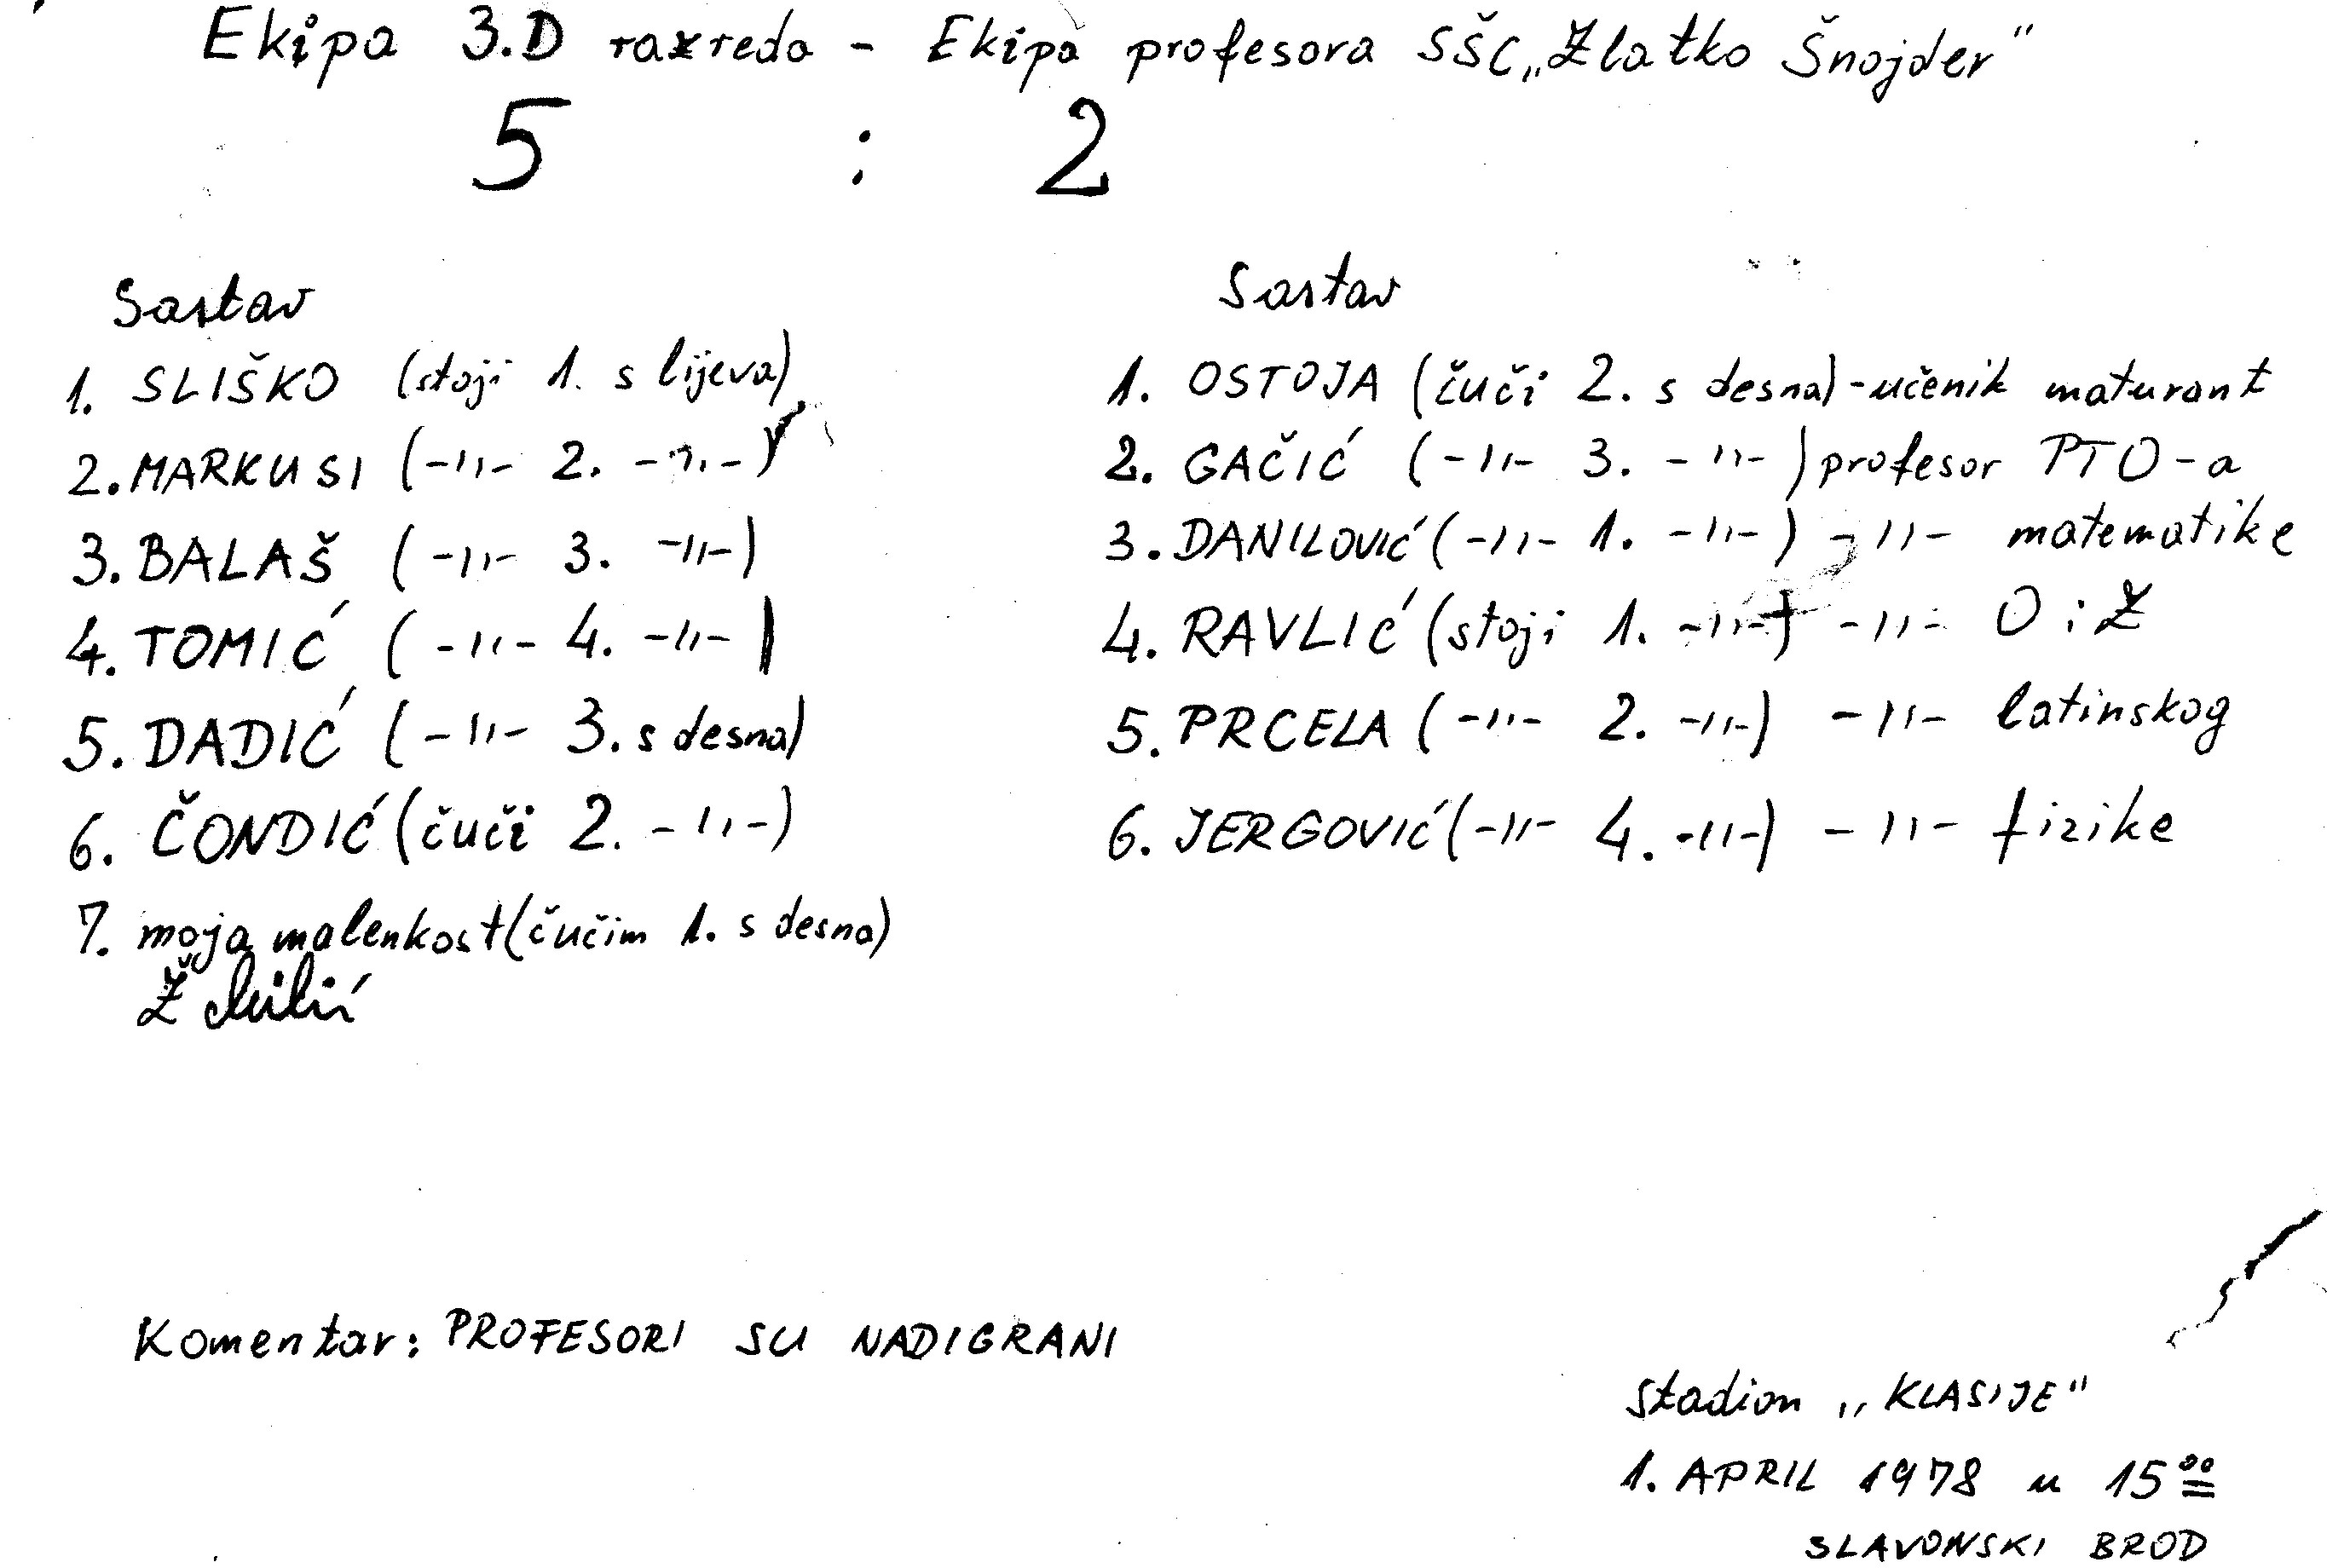 Ekipa 3.D razreda - Ekipa profesora SŠC „Zlatko Šnajder"
5 : 2
Sastav
1. SLIŠKO (stoji 1. s lijeva)
2. MARKUSI (-11- 2. -11-)
3. BALAŠ (-11- 3. -11-)
4. TOMIĆ (-11- 4. -11-)
5. DADIĆ (-11- 3. s desna)
6. ČONDIĆ (čuči 2. -11-)
7. moja malenkost (čučim 1. s desna)
Ž Milić
Sastav
1. OSTOJA (čuči 2. s desna) - učenik maturant
2. GAČIĆ (-11- 3. -11-) profesor PTO-a
3. DANILOVIĆ (-11- 1. -11-) -11- matematike
4. RAVLIĆ (stoji 1. -11-) -11- O i Z
5. PRCELA (-11- 2. -11-) -11- latinskog
6. JERGOVIĆ (-11- 4. -11-) -11- fizike
Komentar: PROFESORI SU NADIGRANI
Stadion „KLASIJE"
1. APRIL 1978 u 15⁰⁰
SLAVONSKI BROD